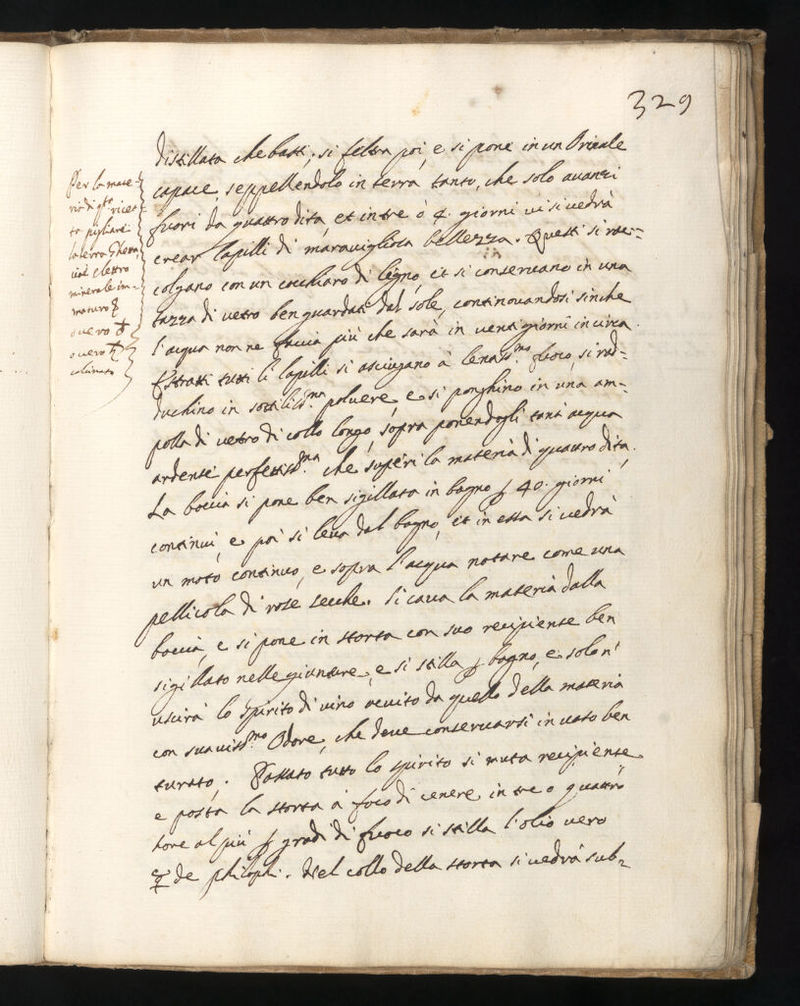 329
distillata che basti, si feltra poi, e si pone in un Orinale
capace, seppellendolo in terra tanto, che solo avanzi
fuori da quattro dita, et in tre ò 4. giorni vi si vedrà
crear lapilli di maravigliosa bellezza. Questi si rac=
colgano con un cucchiaro di legno, et si conservano in una
tazza di vetro ben guardati dal sole, continovandosi sinche
l'acqua non ne faccia più che sarà in venti giorni in circa.
Estratti tutti li lapilli si asciugano à leniss.mo fuoco, si rid=
duchino in sottiliss.ma polvere, e si ponghino in una am=
polla di vetro di collo longo, sopra ponendogli tant'acqua
ardente perfettiss.ma che superi la materia di quattro dita.
La boccia si pone ben sigillata in bagno p 40. giorni
continui, e poi si leva dal bagno, et in essa si vedrà
un moto continuo, e sopra l'acqua notare come una
pellicola di rose secche. Si cava la materia dalla
boccia, e si pone in storta con suo recipiente ben
sigillato nelle giunture, e si stilla p bagno, e solo n'
uscirà lo spirito di vino vestito da quello della materia
con suaviss.mo Odore, che deve conservarsi in vaso ben
turato. Passato tutto lo spirito si muta recipiente
e posta la storta à foco di cenere in tre o quattro
hore al più p gradi di fuoco si stilla l'olio vero
☿ de philosophi. Nel collo della storta si vedrà sub=
Per la mate-
ria di qto ricet-
to pigliare
la terra
minerale im-
maturo ☿
overo ♁
overo ♄